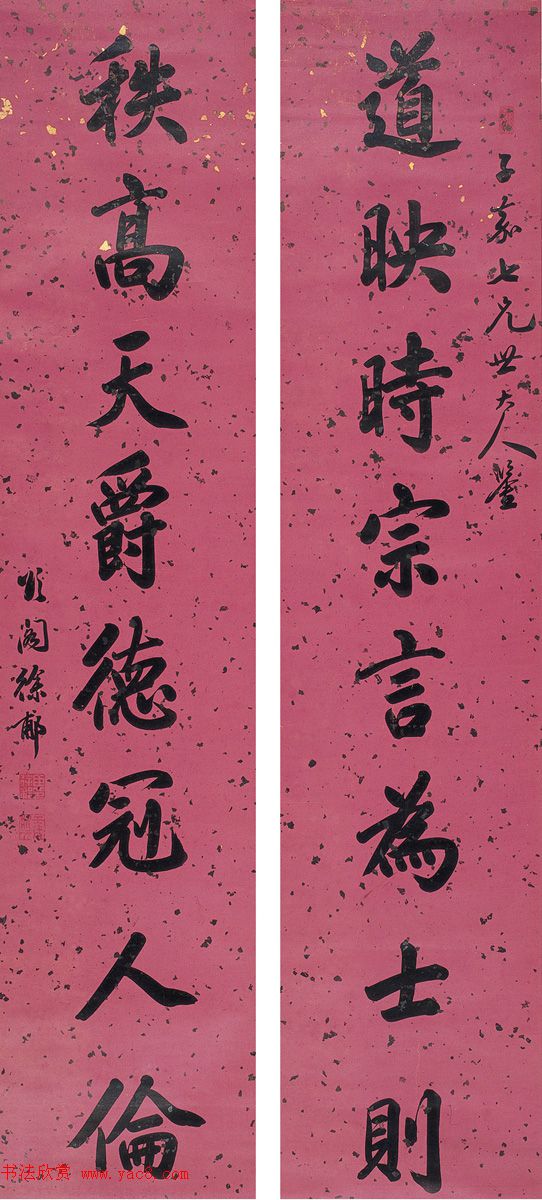 子嘉七兄世大人鑒
道映時宗言為士則
秩高天爵德冠人倫
頌閣徐郙
书法欣赏 www.yac8.com